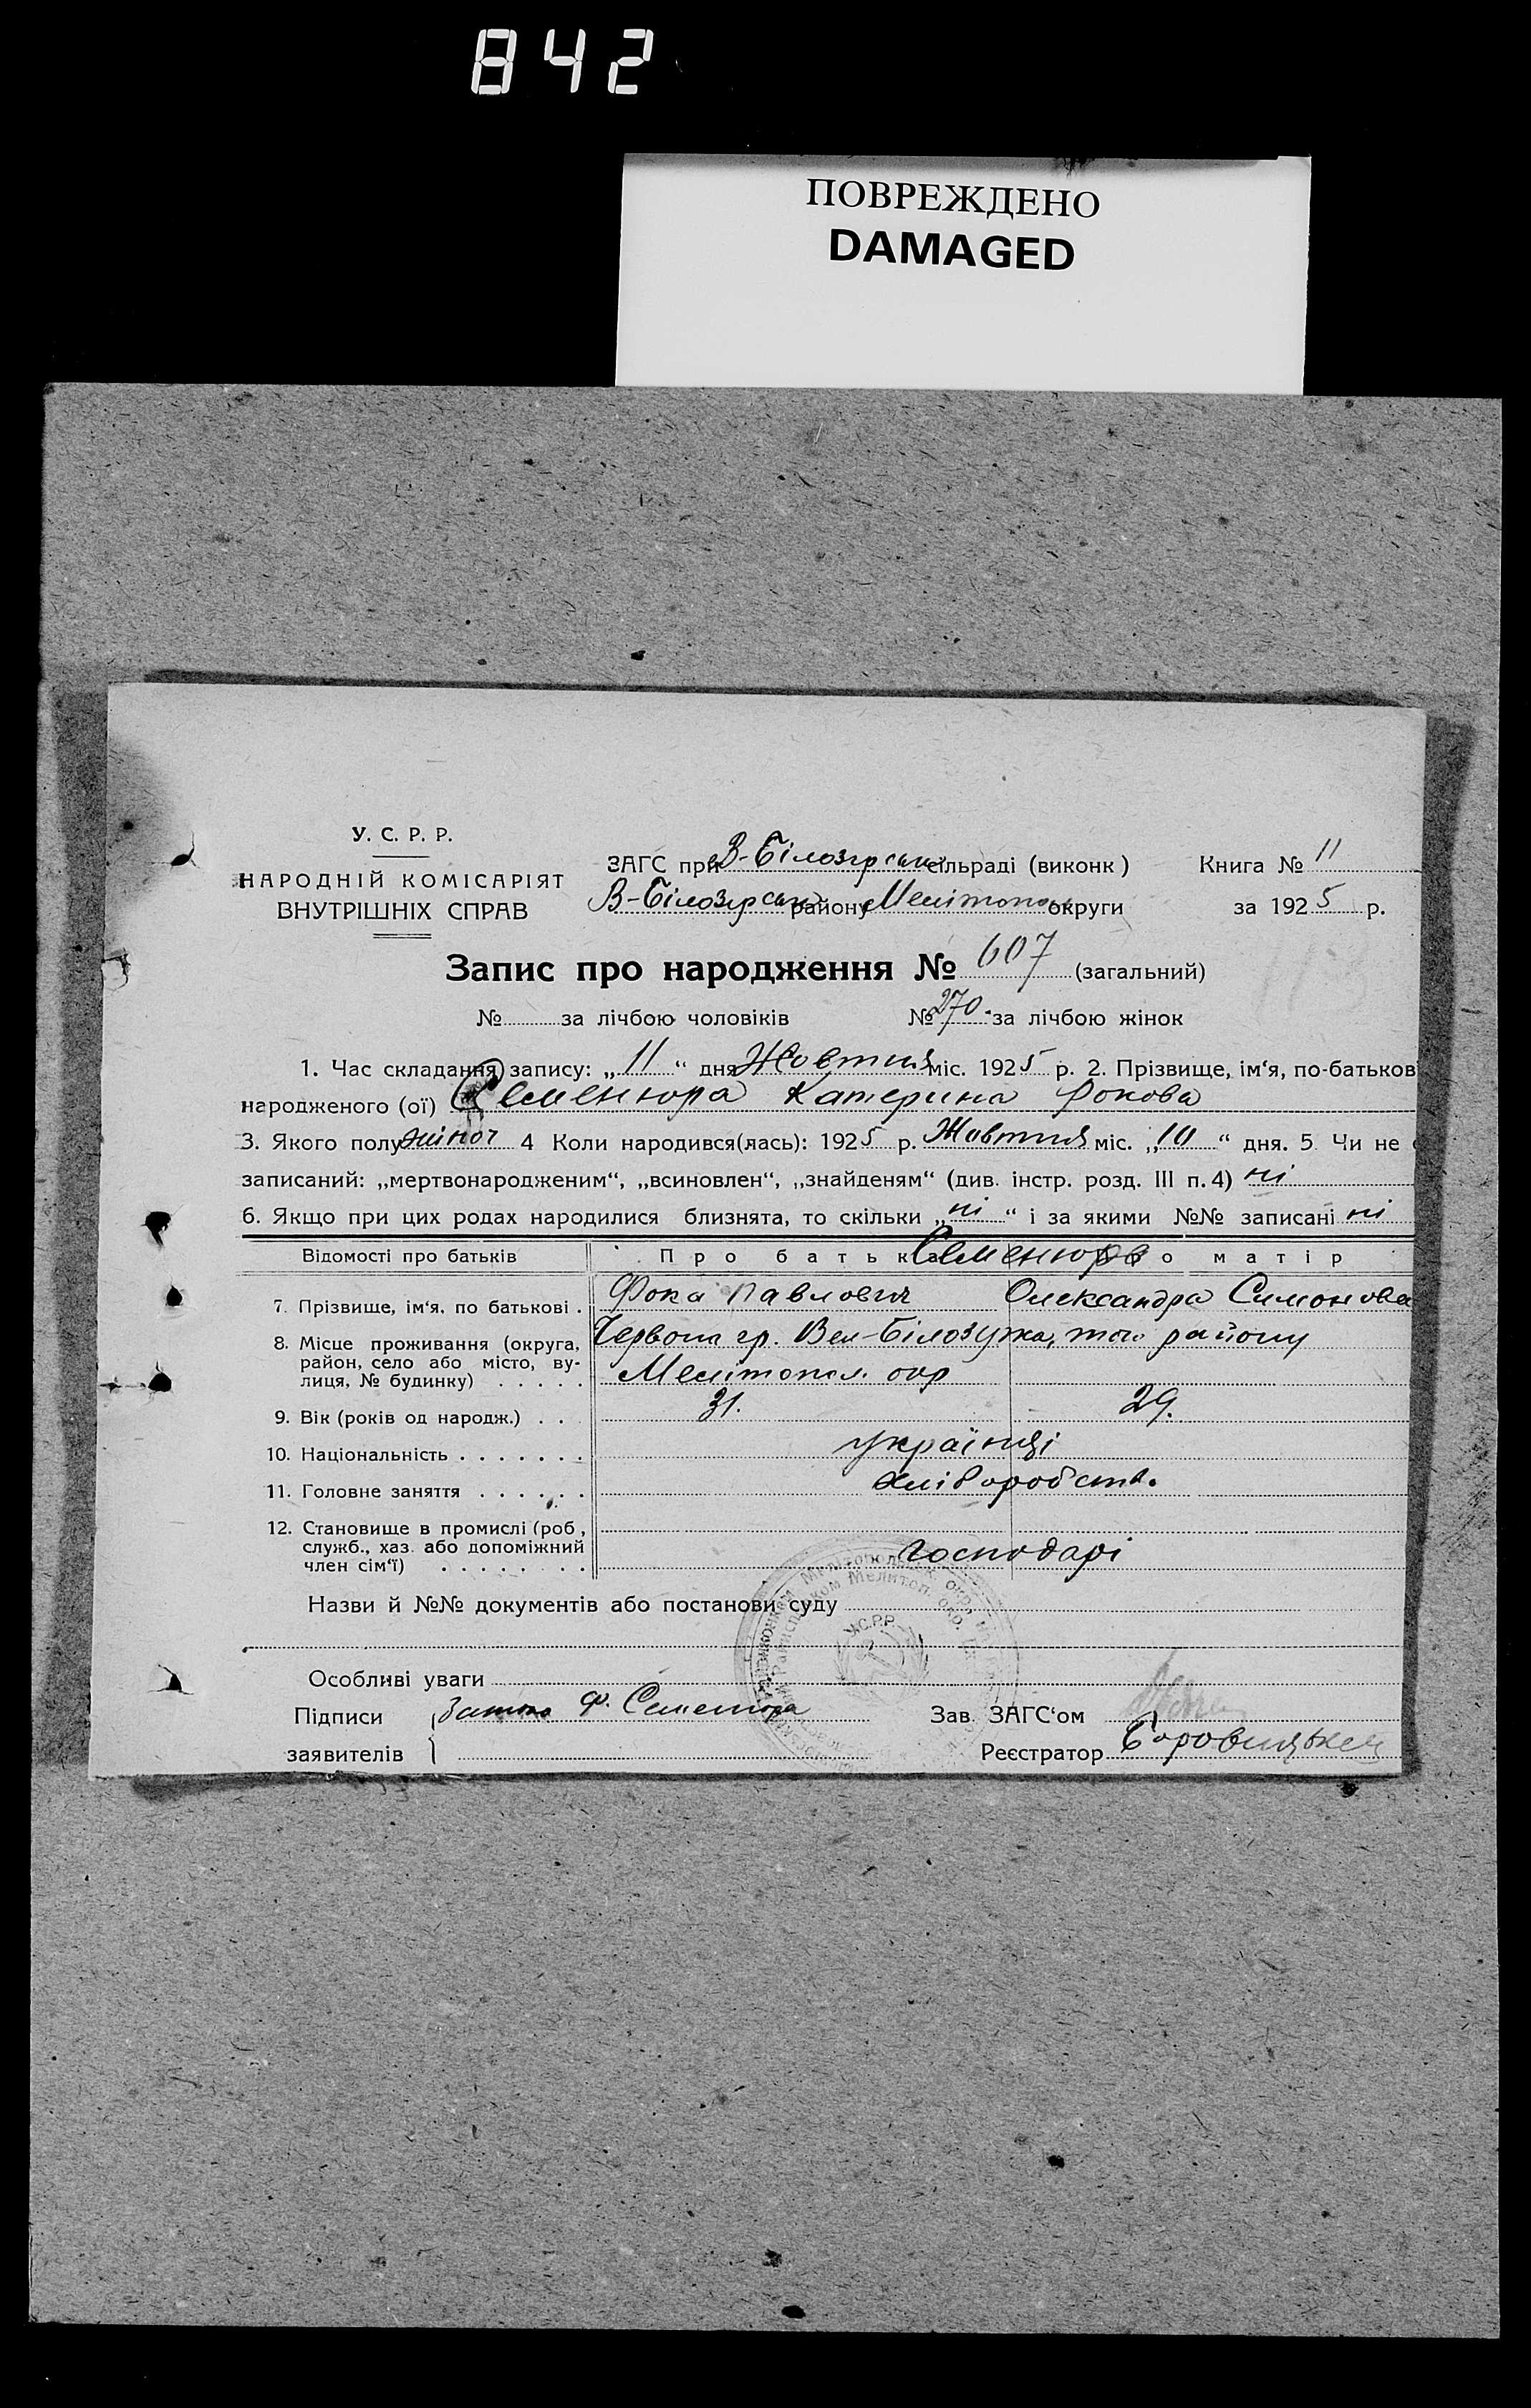 842
ПОВРЕЖДЕНО
DAMAGED
У. С. Р. Р.
НАРОДНІЙ КОМІСАРІЯТ
ВНУТРІШНІХ СПРАВ
ЗАГС при В-Білозірськ сільраді (виконк) Книга № 11
В-Білозірськ району Мелітопол округи за 1925 р.
Запис про народження № 607 (загальний)
№ за лічбою чоловіків № 270 за лічбою жінок
1. Час складання запису: „11“ дня Жовтня міс. 1925 р. 2. Прізвище, ім‘я, по-батьков
народженого (ої) Семенюра Катерина Фокова
3. Якого полу жіноч 4 Коли народився(лась): 1925 р. Жовтня міс. „10“ дня. 5. Чи не
записаний: „мертвонародженим“, „всиновлен“, „знайденям“ (див. інстр. розд. III п. 4) ні
6. Якщо при цих родах народилися близнята, то скільки „ні“ і за якими №№ записані ні
Відомості про батьків Про батька Семенюра Про матір
7. Прізвище, ім‘я, по батькові . Фока Павлович Олександра Симонова
8. Місце проживання (округа, район, село або місто, вулиця, № будинку) Червона гр. Вел-Білозірка, того району
Мелітопол. окр
9. Вік (років од народж.) . . 31. 29.
10. Національність . . . . . . . українці
11. Головне заняття . . . . . . хліборобств.
12. Становище в промислі (роб, служб., хаз. або допоміжний член сім‘ї) . . . . . . . господарі
Назви й №№ документів або постанови суду
У.С.Р.Р.
Особливі уваги
Підписи Ф. Семенюра Зав. ЗАГС‘ом
заявителів Реєстратор